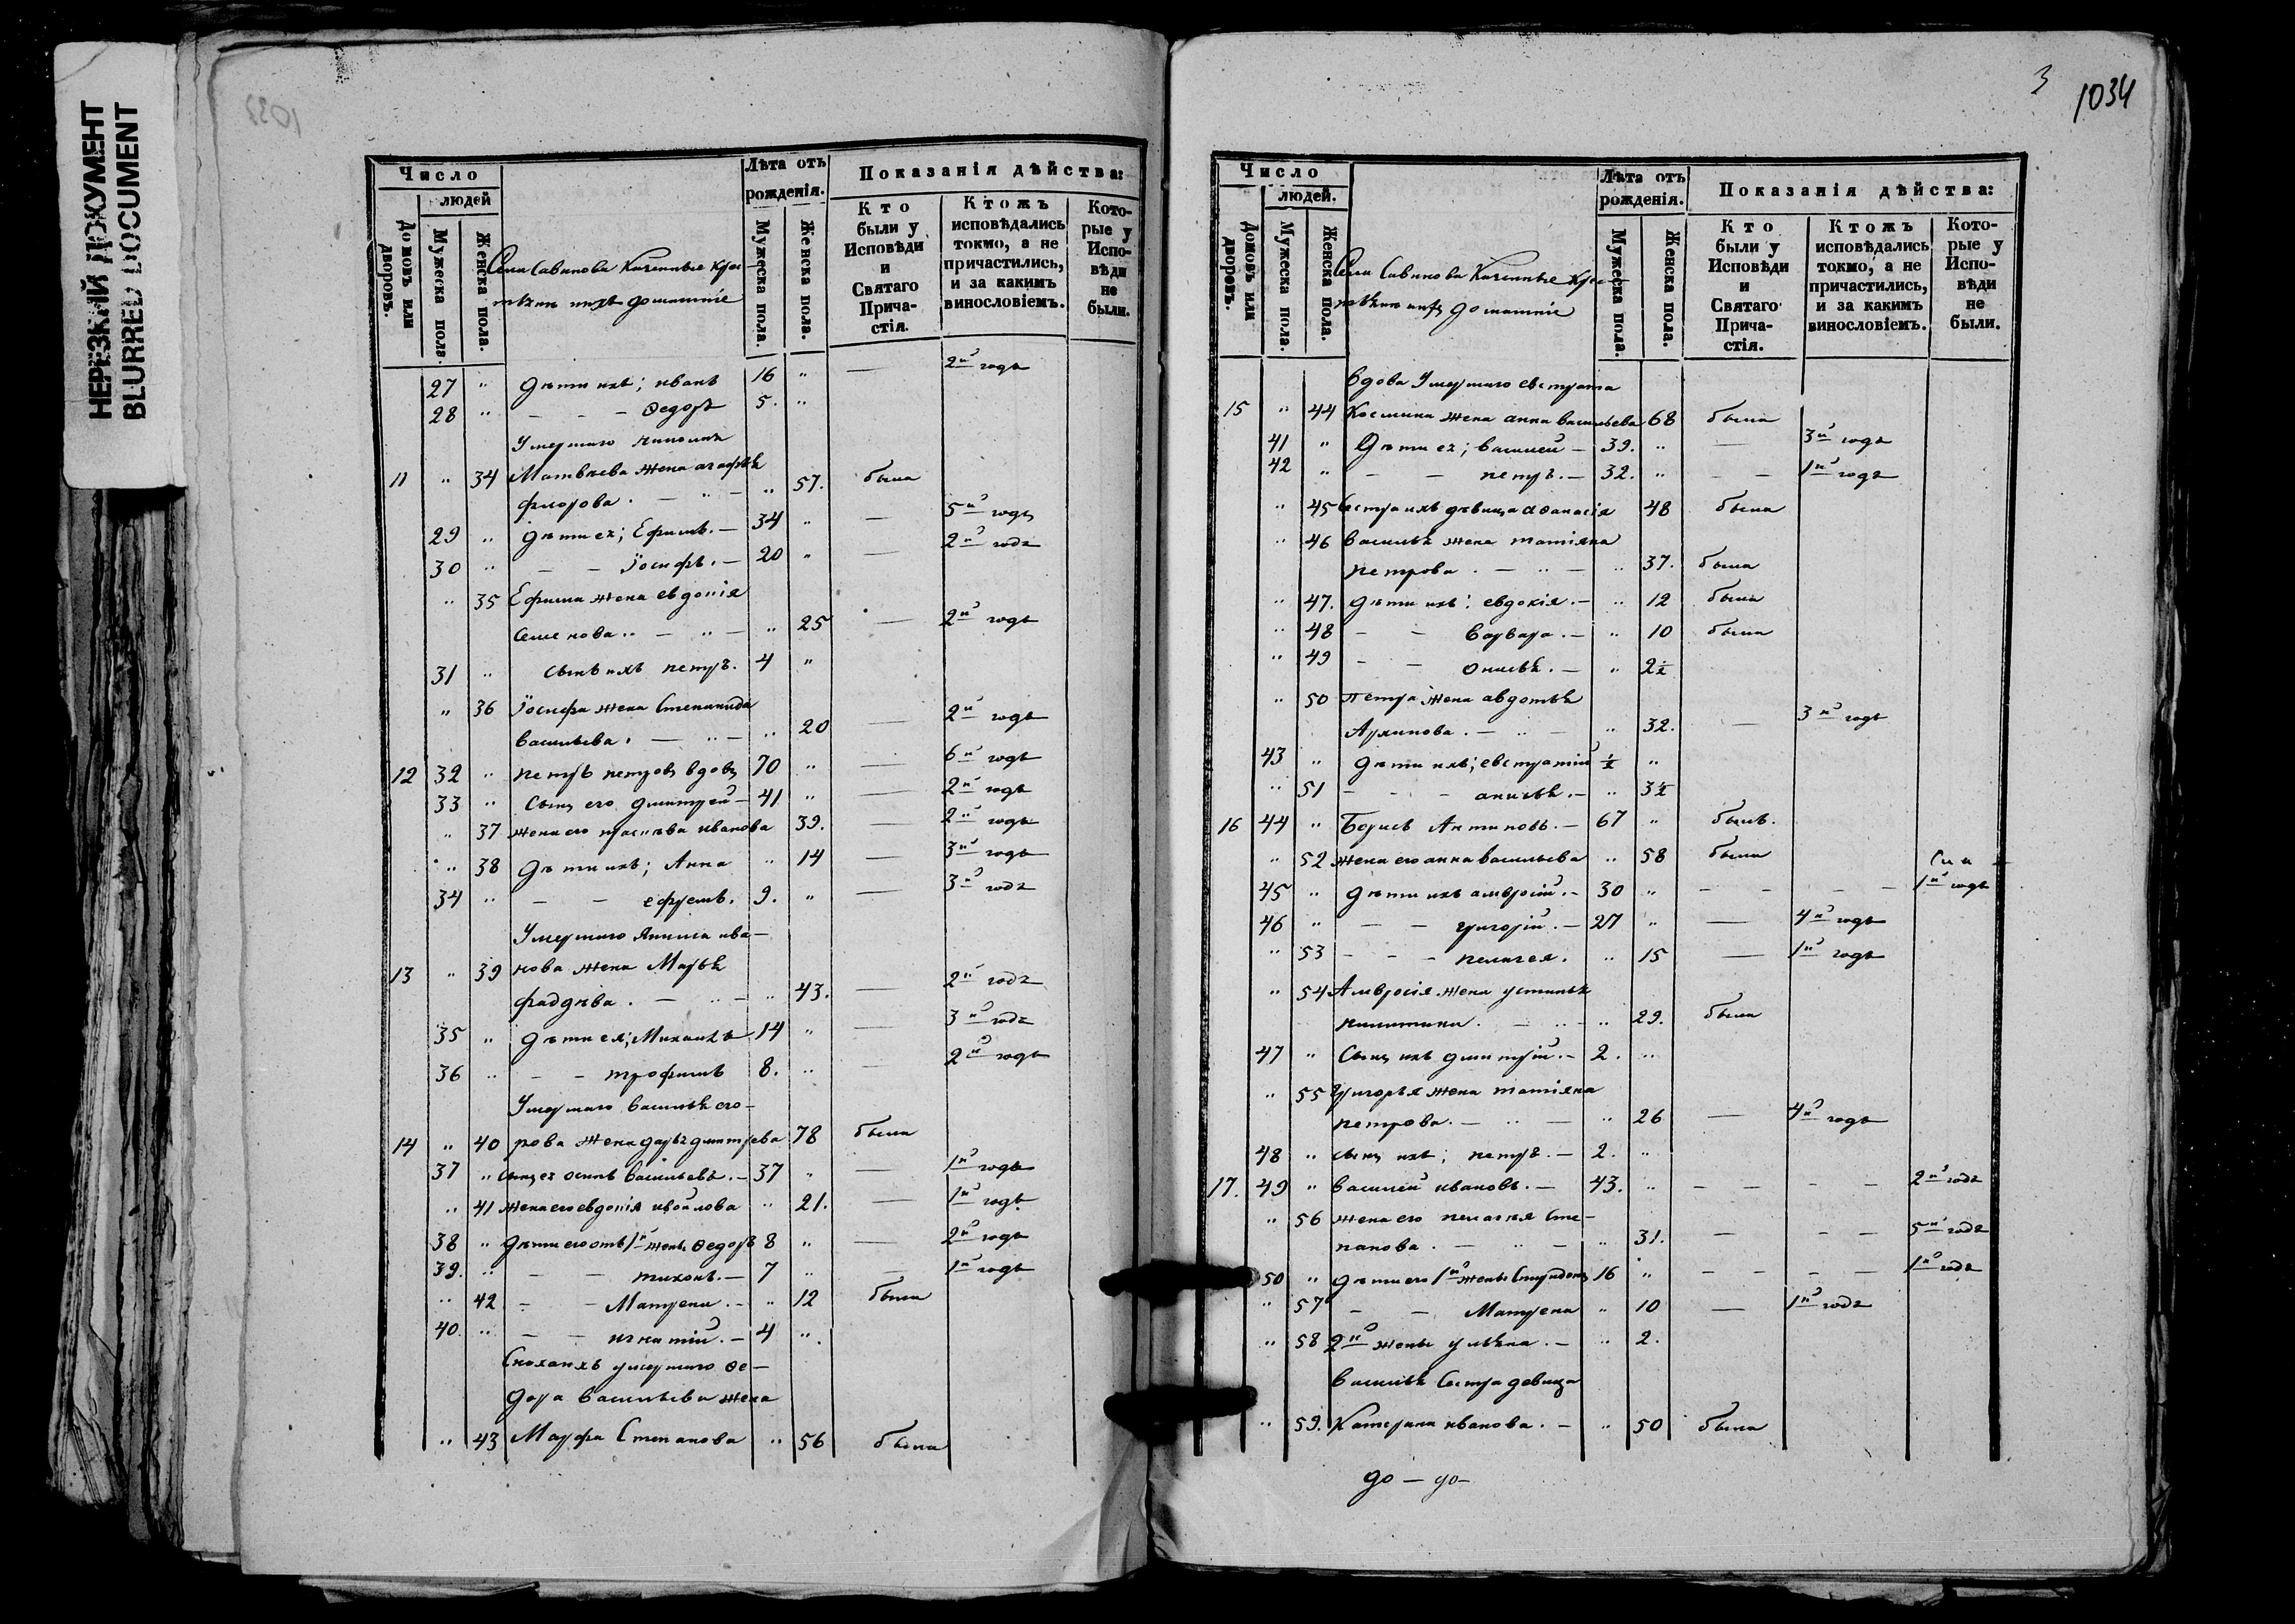 НЕРЕЗКИЙ ДОКУМЕНТ
BLURRED DOCUMENT
Число
людей
Лѣта отъ рожденія.
Показанія дѣйства:
Домовъ или дворовъ.
Мужеска пола.
Женска пола.
Села Савинова Казенные крес-
тьяни и ихъ домашніе
Мужеска пола.
Женска пола.
Кто были у Исповѣди и Святаго Прича-стія.
Ктожъ исповѣдались токмо, а не причастились, и за какимъ винословіемъ.
Кото-рые у Испо-вѣди не были.
27 " дѣти ихъ; иванъ 16 " — 2й годъ
28 " — — Ѳедоръ 5. "
Умершаго
11 " 34 Матвѣева жена агафья
фролова. — " — " 57. была
29 " дѣти ея; Ефимъ. — 34 " — 5й годъ
30 " — — Іосифъ. — 20 " — 2й годъ
" 35 Ефима жена евдокія
семенова " — " — " 25 — 2й годъ
31 " сынъ ихъ петръ. 4 "
" 36 Іосифа жена Степанида
васильева. — " — " 20 — 2й годъ
12 32 " петръ петровъ вдовъ 70 " — 6й годъ
33 " сынъ его дмитрей — 41 " — 2й годъ
" 37 жена его прасковья иванова 39. — 2й годъ
" 38 дѣти ихъ; Анна " 14 — 3й годъ
34 " — — ефремъ. 9. " — 3й годъ
Умершаго ива—
13 " 39 нова жена Марья
фадѣева. — " — " 43. — 2й годъ
35 " дѣти ея; Михаилъ 14 " — 3й годъ
36 " — — трофимъ 8. " — 2й годъ
Умершаго василья его—
14 " 40 рова жена дарья дмитрева 78 была
37 " сынъ ея осипъ васильевъ. — 37 " — 1й годъ
" 41 жена его евдокія " 21. — 1й годъ
38 " дѣти его отъ 1й жены Ѳедоръ 8 " — 2й годъ
39. " — — тихонъ. — 7 " — 1й годъ
" 42 — — Матрена. — " 12 была
40. " — — игнатій. — 4 "
Сноха ихъ умершаго Ѳе—
дора васильева жена
" 43 Марфа Степанова " 56 была
3
1034
Число
людей.
Лѣта отъ рожденія.
Показанія дѣйства:
Домовъ или дворовъ.
Мужеска пола.
Женска пола.
Села Савинова Казенные крес-
тьяни и ихъ домашніе
Мужеска пола.
Женска пола.
Кто были у Исповѣди и Святаго Прича-стія.
Ктожъ исповѣдались токмо, а не причастились, и за какимъ винословіемъ.
Кото-рые у Испо-вѣди не были.
вдова Умершаго евстрата
15 " 44 Косьмина жена анна васильева 68 была
41 " Дѣти ея; василей — 39. " — 3й годъ
42 " — — петръ. — 32. " — — 1й годъ
" 45 Сестра ихъ дѣвица аѳанасія 48 была
" 46 василья жена татіяна
петрова. — " — " 37. была
" 47. дѣти ихъ: евдокія. — " 12 была
" 48 — — варвара. — " 10 была
" 49 — — — " 2½
" 50 Петра жена авдотья
Архипова. — " — " 32. — 3й годъ
43 " дѣти ихъ; евстратій ½ "
" 51 — — — анисья. — " 3½
16 44 " Борисъ Антиповъ. — 67 " былъ.
" 52 жена его анна васильева " 58 была
45 " дѣти ихъ амвросій. — 30 " — — — 1й годъ
46 " — — григорій. — 27 " — 4й годъ
" 53 — — — пелагея. " 15 — 1й годъ
" 54 Амвросія жена устинья
никитина. — " — " 29. была
47 " Сынъ ихъ дмитрій. — 2. "
" 55 Григорья жена татіяна
петрова. — " — " 26 — 4й годъ
48 " сынъ ихъ; петръ. — 2. "
17. 49 " василей ивановъ. — 43. " — — — — 2й годъ
" 56 жена его пелагея Сте—
панова. — " — " 31. — — — 5й годъ
50 " дѣти его 1й жены Спиридонъ 16 " — — — — 1й годъ
" 57 — — Матрена " 10 — 1й годъ
" 58 2й жены ульяна. — " 2.
василья Сестра девица
" 59. Катерина иванова. — " 50 была
до — до —